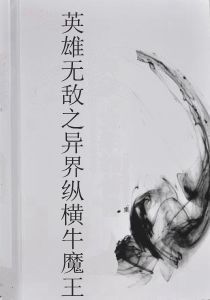 英雄无敌之异界纵横牛魔王